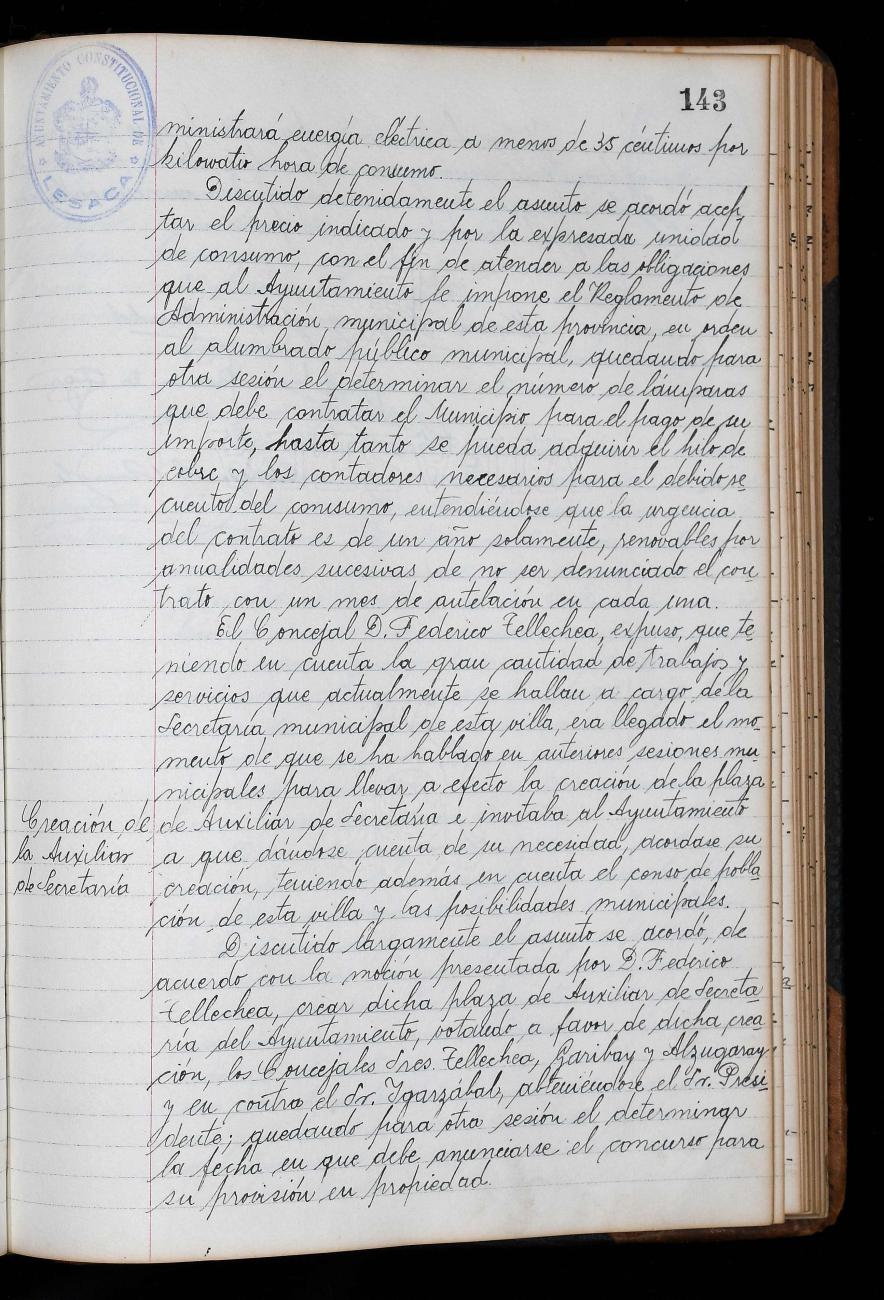 143
AYUNTAMIENTO CONSTITUCIONAL DE
LESACA
ministrará energía eléctrica a menos de 35 céntimos por
kilowatio hora de consumo.
Discutido detenidamente el asunto se acordó acep-
tar el precio indicado y por la expresada unidad
de consumo, con el fin de atender a las obligaciones
que al Ayuntamiento le impone el Reglamento de
Administración municipal de esta provincia, en orden
al alumbrado público municipal, quedando para
otra sesión el determinar el número de lámparas
que debe contratar el Municipio para el pago de su
importe, hasta tanto se pueda adquirir el hilo de
cobre y los contadores necesarios para el debido se-
cuento del consumo, entendiéndose que la urgencia
del contrato es de un año solamente, renovables por
anualidades sucesivas de no ser denunciado el con-
trato con un mes de antelación en cada una.
El Concejal D. Federico Tellechea, expuso, que te-
niendo en cuenta la gran cantidad de trabajos y
servicios que actualmente se hallan a cargo de la
Secretaría municipal de esta villa, era llegado el mo-
mento de que se ha hablado en anteriores sesiones mu-
nicipales para llevar a efecto la creación de la plaza
Creación de
la Auxiliar
de Secretaría
de Auxiliar de Secretaría e invitaba al Ayuntamiento
a que, dándose cuenta de su necesidad, acordase su
creación, teniendo además en cuenta el censo de pobla-
ción de esta villa y las posibilidades municipales.
Discutido largamente el asunto se acordó, de
acuerdo con la moción presentada por D. Federico
Tellechea, crear dicha plaza de Auxiliar de Secreta-
ría del Ayuntamiento, votando a favor de dicha crea-
ción, los Concejales Sres. Tellechea, Garibay y Alzugaray
y en contra el Sr. Igarzábal, absteniéndose el Sr. Presi-
dente; quedando para otra sesión el determinar
la fecha en que debe anunciarse el concurso para
su provisión en propiedad.